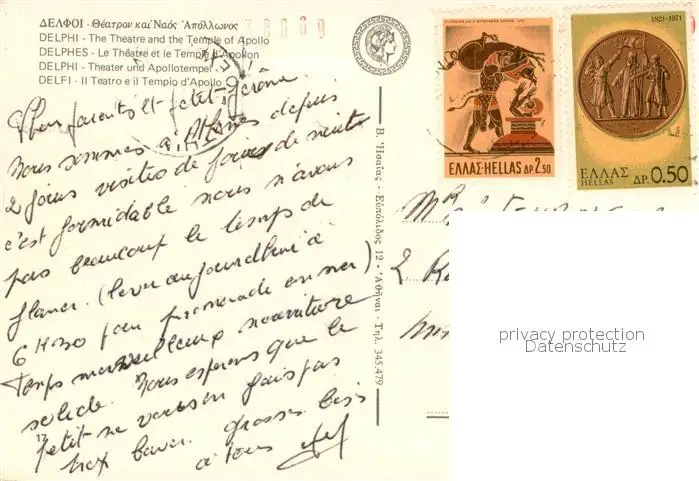 ΔΕΛΦΟΙ - Θέατρον καί Ναός Ἀπόλλωνος
DELPHI - The Theatre and the Temple of Apollo
DELPHES - Le Théâtre et le Temple d'Apollon
DELPHI - Theater und Apollotempel
DELFI - Il Teatro e il Tempio d'Apollo
Chers parents et petit Jérôme
Nous sommes à Athènes depuis
2 jours visites de jours de nuits
c'est formidable nous n'avons
pas beaucoup le temps de
flaner. (lever aujourdhui à
6 H 30 pour promenade en mer)
Temps merveilleux nourriture
solide. Nous esperons que le
petit ne vous en fais pas
trop baver. Grosses bises
à tous
17
Β. Ἡσαΐας - Εὐπόλιδος 12 - Ἀθῆναι - Τηλ. 345.479
ΕΛΛΑΣ-HELLAS ΔΡ. 2.50
1821-1971
ΕΛΛΑΣ
HELLAS ΔΡ. 0.50
privacy protection
Datenschutz